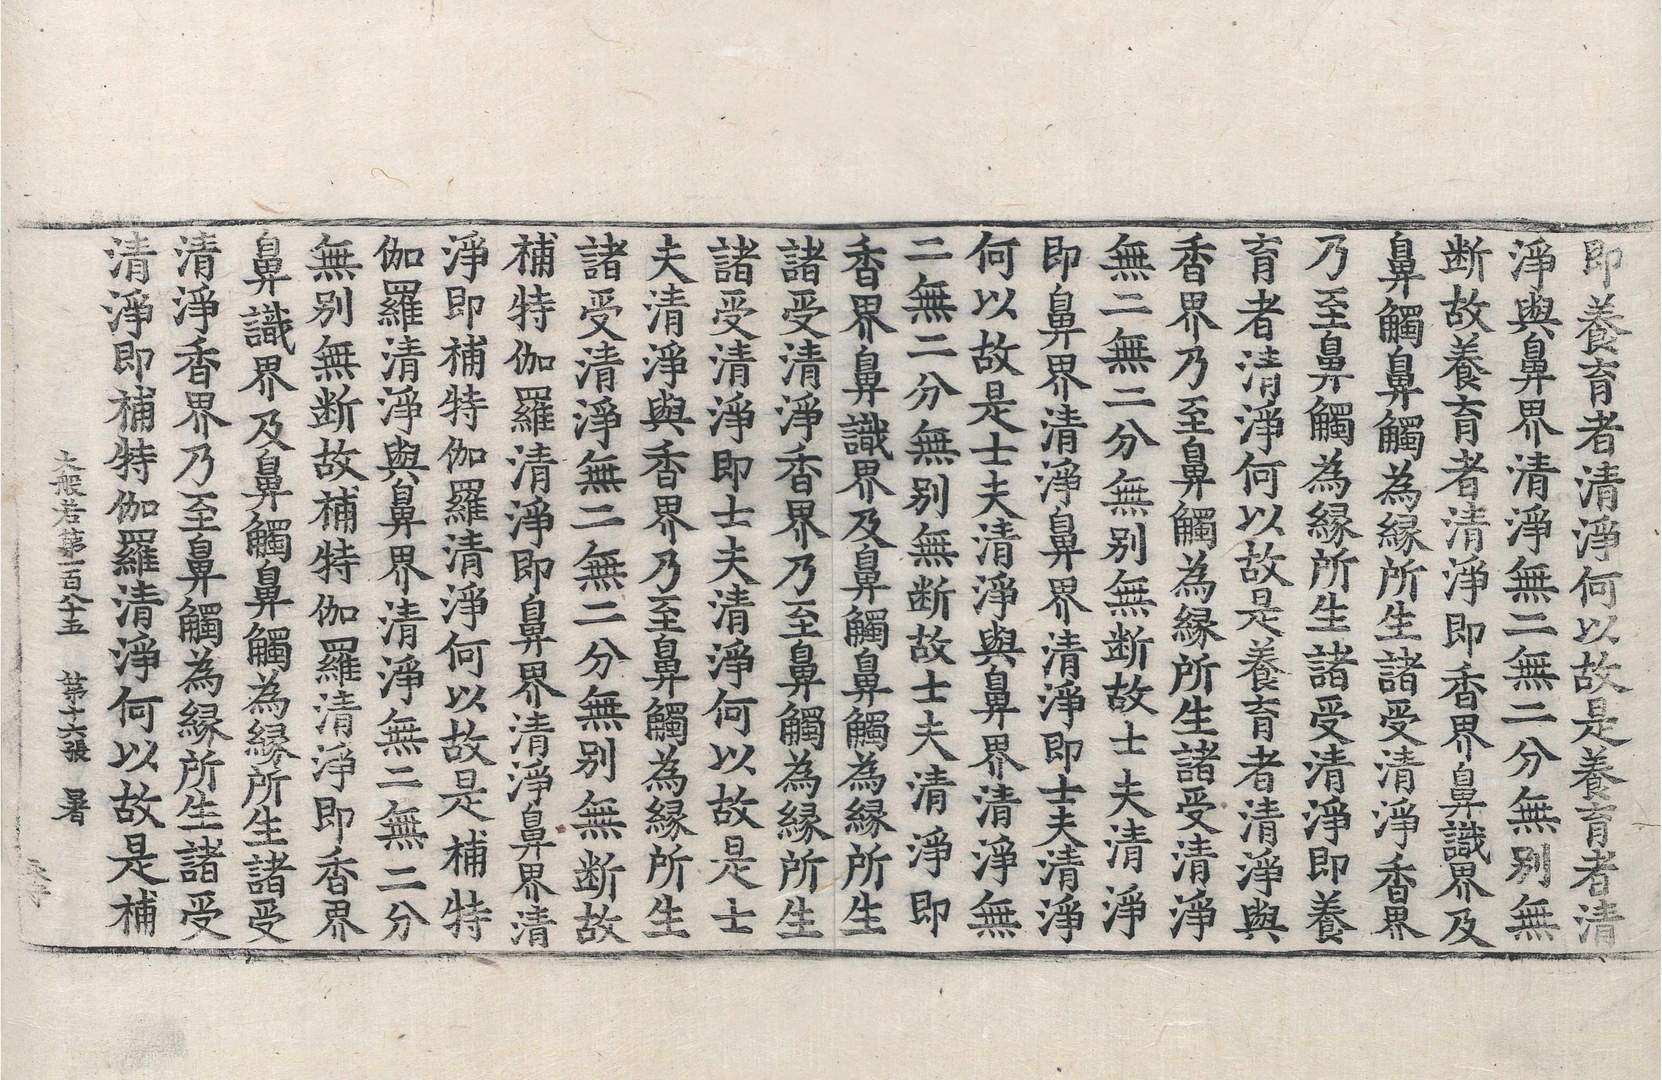 即養育者清淨何以故是養育者清
淨與鼻界清淨無二無二分無別無
断故養育者清淨即香界鼻識界及
鼻觸鼻觸為縁所生諸受清淨香界
乃至鼻觸為縁所生諸受清淨即養
育者清淨何以故是養育者清淨與
香界乃至鼻觸為縁所生諸受清淨
無二無二分無別無断故士夫清淨
即鼻界清淨鼻界清淨即士夫清淨
何以故是士夫清淨與鼻界清淨無
二無二分無別無断故士夫清淨即
香界鼻識界及鼻觸鼻觸為縁所生
諸受清淨香界乃至鼻觸為縁所生
諸受清淨即士夫清淨何以故是士
夫清淨與香界乃至鼻觸為縁所生
諸受清淨無二無二分無別無断故
補特伽羅清淨即鼻界清淨鼻界清
淨即補特伽羅清淨何以故是補特
伽羅清淨與鼻界清淨無二無二分
無別無断故補特伽羅清淨即香界
鼻識界及鼻觸鼻觸為縁所生諸受
清淨香界乃至鼻觸為縁所生諸受
清淨即補特伽羅清淨何以故是補
大般若第一百八十五 第十六張 暑